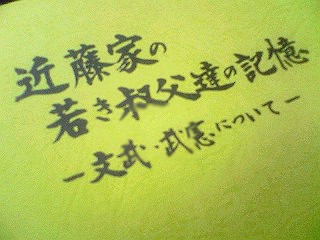 近藤家の
若き叔父達の記憶
－文武・武憲について－